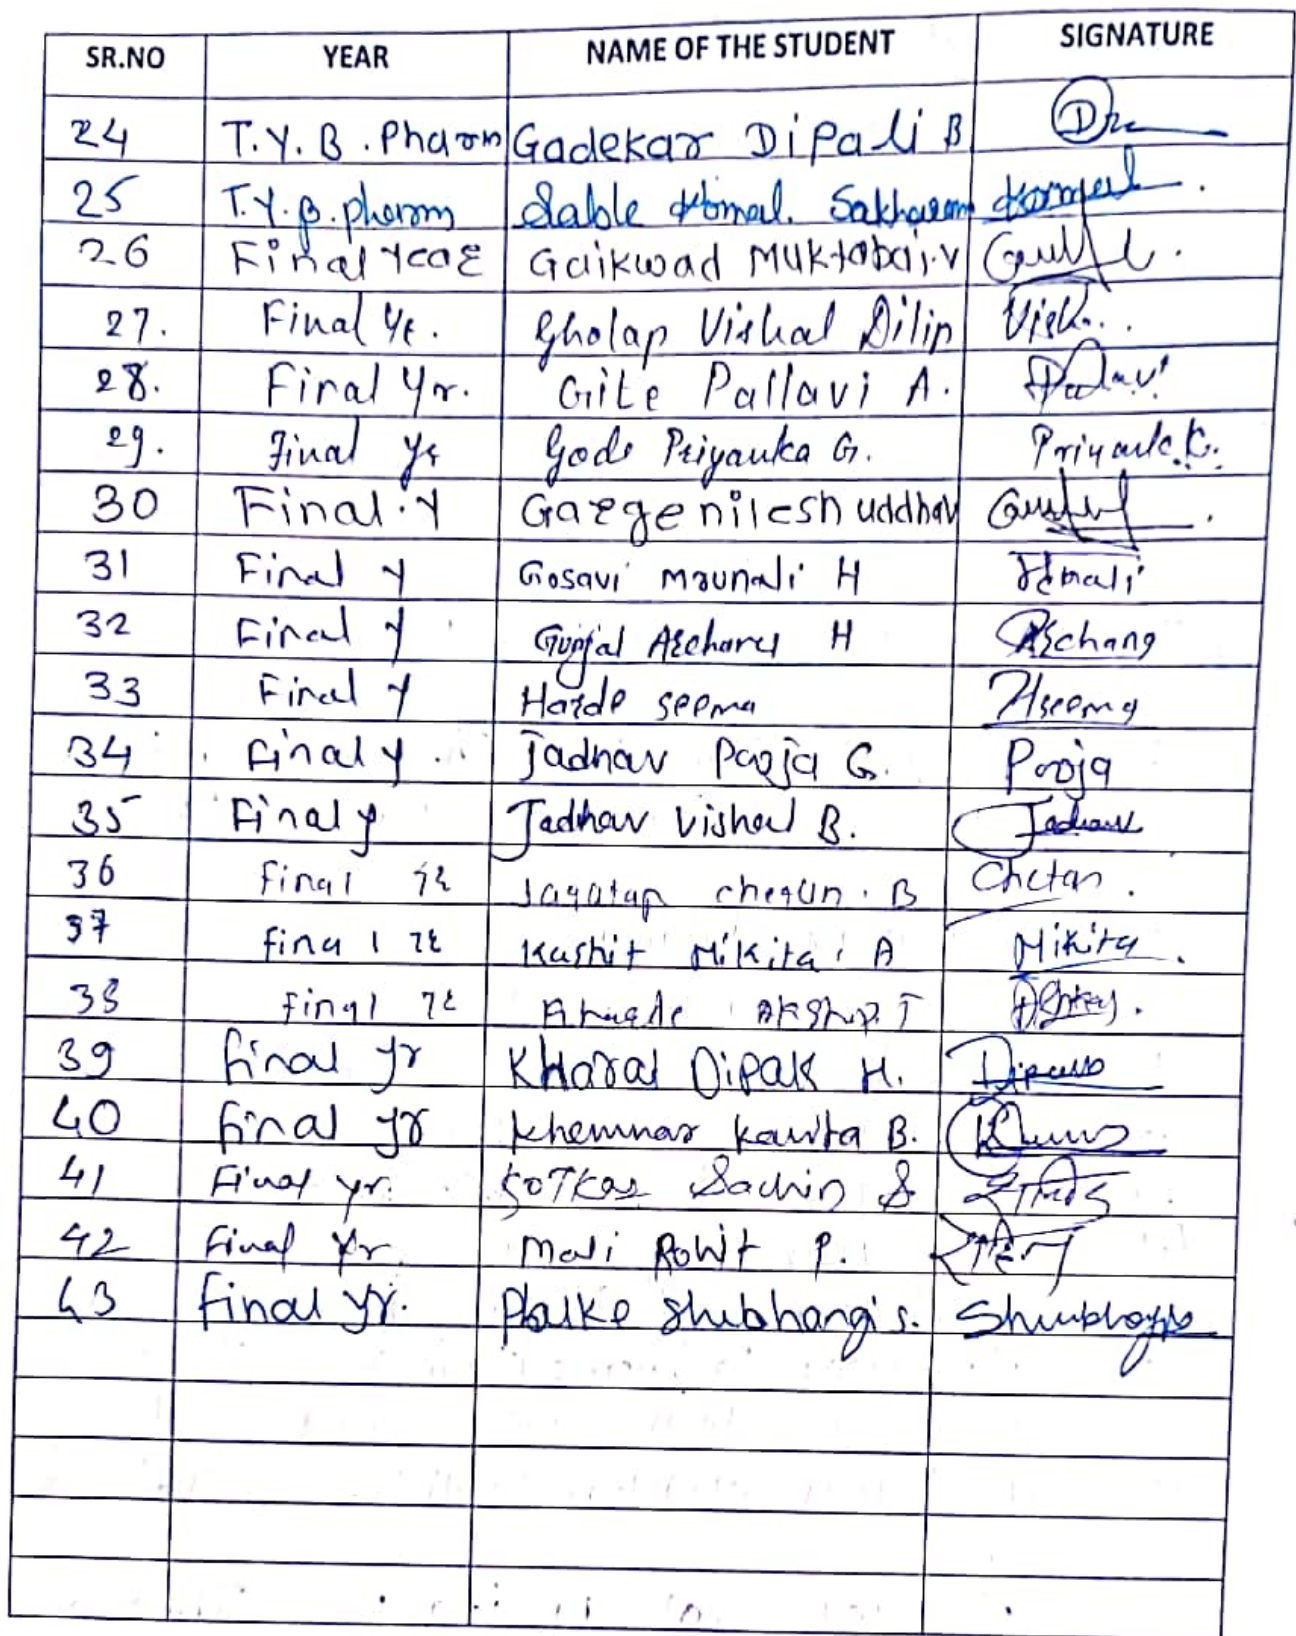 SR.NO YEAR NAME OF THE STUDENT SIGNATURE
24 T.Y.B.Pharm Gadekar Dipali B
25 T.Y.B.pharm Sable Komal. Sakharam Komal
26 Final Year Gaikwad Muktabai.V
27. Final Yr. Gholap Vishal Dilip Vish..
28. Final Yr. Gite Pallavi A.
29. Final Yr Gode Priyanka G.
30 Final.Y Garge nilesh uddhav
31 Final Y Gosavi H
32 Final Y Gunjal H
33 Final Y Harde seema Hseema
34 Final Y Jadhav Pooja G. Pooja
35 Final Y Jadhav Vishal B. Jadhav
36 Final Yr B Chetan.
37 Final Yr Nikita A Nikita.
38 Final Yr
39 final yr Kharal Dipak H.
40 final yr Khemnar Kavita B.
41 Final yr. Kotkar Sachin S
42 Final Yr Mali Rohit P.
43 final yr. Shubhangi s.